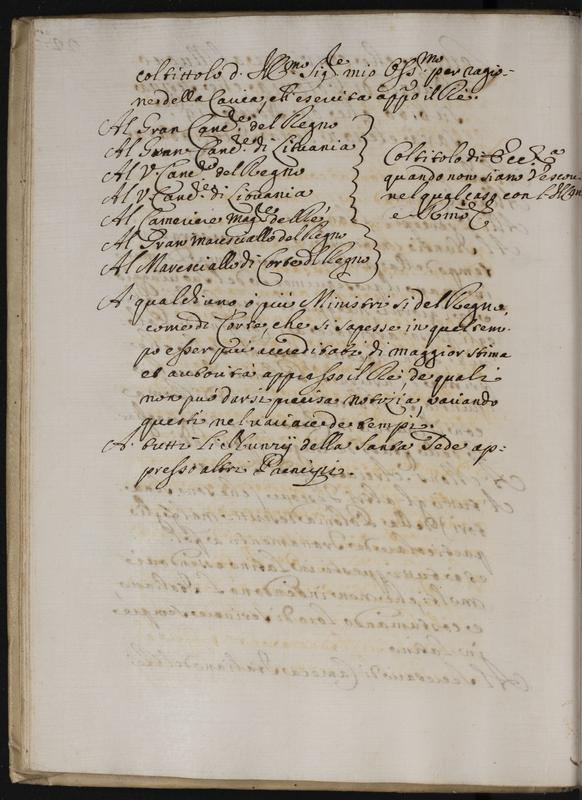 col tittolo d. Ill.mo Sig.re mio Oss.mo per ragio-
ne della Carica, ch'esercita app.o il Re.
Al Gran Canc.re del Regno
Al Gran Canc.re di Lituania
Al V. Canc.re del Regno
Al V. Canc.re di Lituania
Al Cameriere Mag.re del Re
Al Gran Maresciallo del Regno
Al Maresciallo di Corte del Regno
Col titolo di Ecc.za
quando non siano Vescovi
nel qual caso con l'Ill.mo
e R.mo
A' qualch'uno ò più Ministri sì del Regno,
come di Corte, che si sapesse in quel tem-
po esser più accreditato, di maggior stima
et autorità appresso il Rè, de quali
non può darsi precisa notizia, variando
questi nel variar de tempi.
A' tutti li Nunzij della Santa Sede ap-
presso altri Principi.